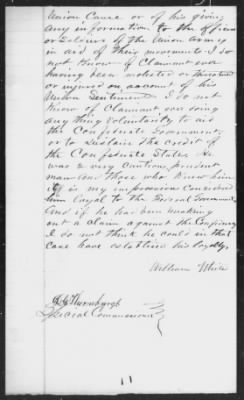 Union Cause or of his giving
any information to the officers
or Soldiers of the Union Army
in aid of their movements. I do
not know of Claimant ever
having been molested or threatened
or injured on account of his
Union Sentiments. I do not
know of Claimant ever doing
any thing voluntarily to aid
the Confederate Government
or to sustain the credit of
the Confederate States. He
was a very cautious prudent
man and those who knew him
it is my impression considered
him loyal to the Federal Government
And if he had been making
out a claim against the Confederacy
I do not think he could in that
case have establied his loyalty.
William White
Special Commissioner
11